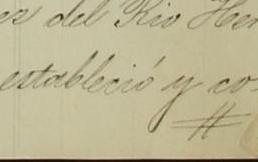 ez del Rio Her
estableció y co-